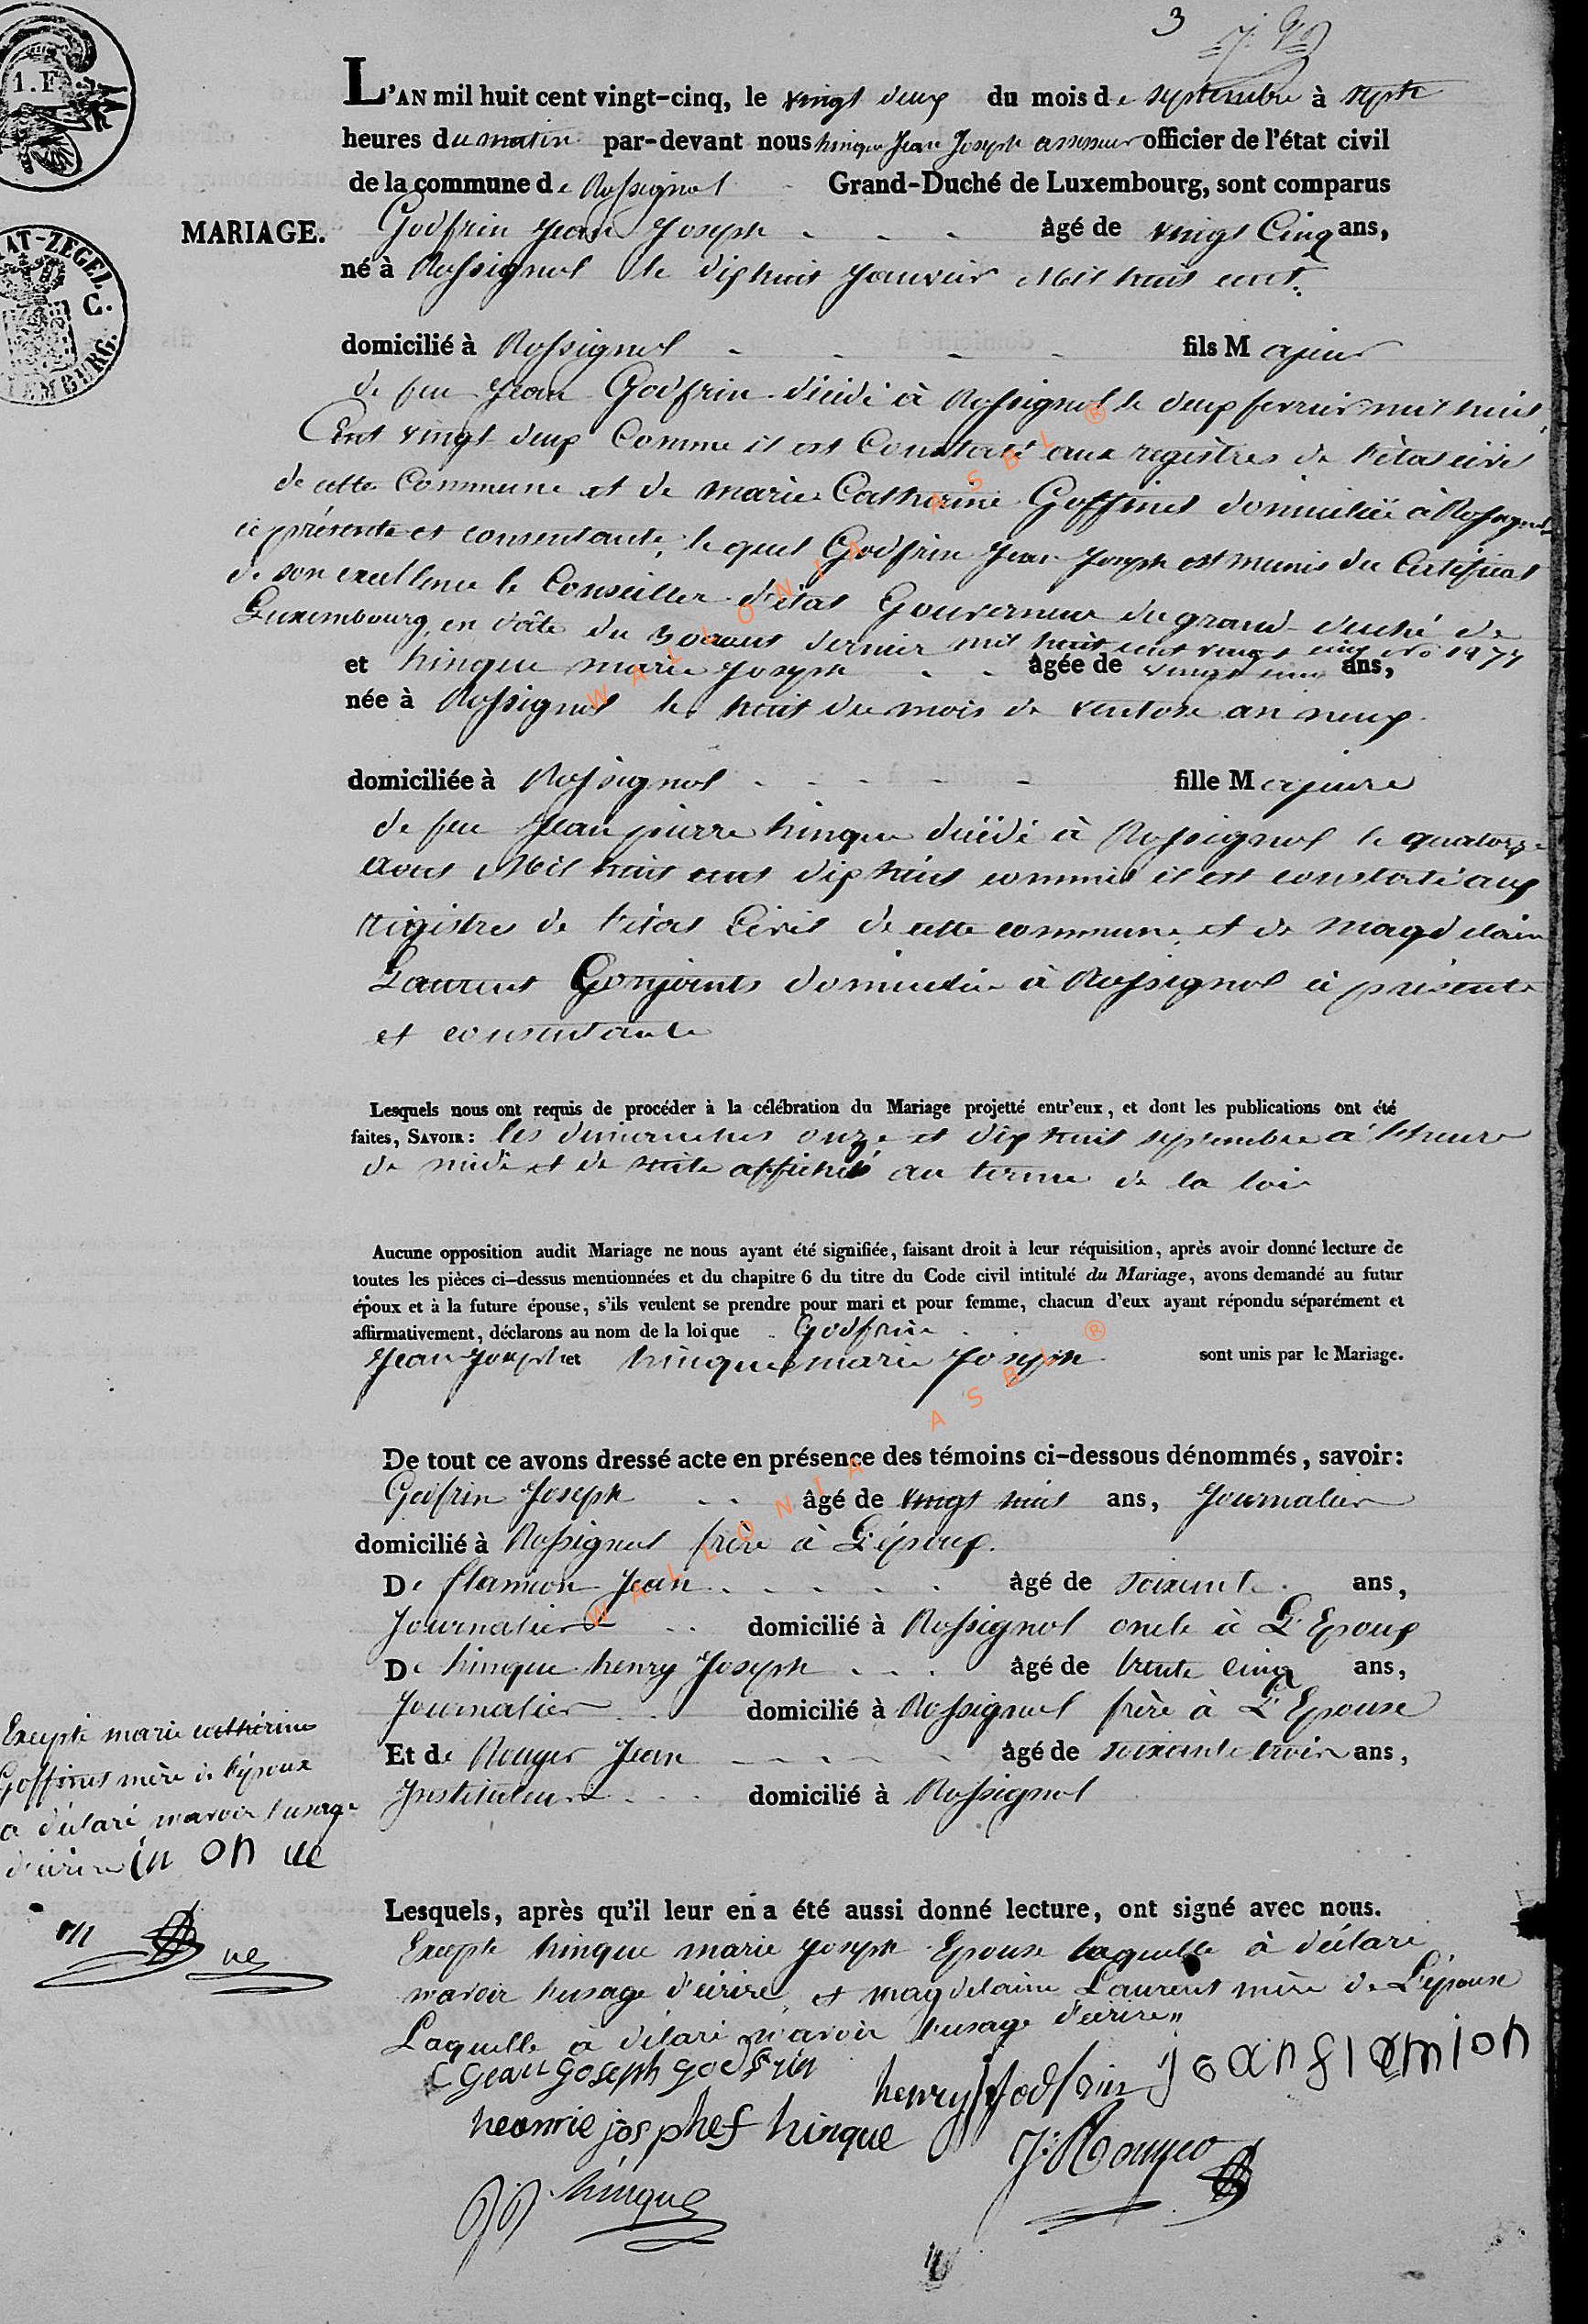 3
1. F.
L'AN mil huit cent vingt-cinq, le vingt deux du mois de septembre à septe
heures du matin par-devant nous hinque Jean Joseph assesseur officier de l'état civil
de la commune de Rossignol Grand-Duché de Luxembourg, sont comparus
AT-ZEGEL
C.
EMBURG.
MARIAGE.
Godfrin Jean Joseph âgé de vingt Cinq ans,
né à Rossignol le dix huit Janvier Mil huit cent.
domicilié à Rossignol fils Majeur
de feu Jean Godfrin décédé à Rossignol le deux fevrier mil huit
Cent vingt deux Comme il est Constaté aux registres de l'état civil
de cette Commune et de marie Catherine Goffinet domiciliée à Rossignol
ci présente et consentante, le quel Godfrin Jean Joseph est munis du Certificat
de son excellence le Conseiller d'état Gouverneur du grand duché de
Luxembourg, en dâte du 30 aout dernier mil huit cent vingt cinq No 1977
et hinque marie Joseph âgée de vingt cinq ans,
née à Rossignol le huit du mois de ventose an neuf
domiciliée à Rossignol fille Majeure
de feu Jean pierre hinque décédé à Rossignol le quatorze
aout Mil huit cent dix huit comme il est constaté aux
régistres de l'état Civil de cette commune, et de magdelaine
Laurent Conjoints domiciliée à Rossignol ci présente
et consentante
Lesquels nous ont requis de procéder à la célébration du Mariage projetté entr'eux, et dont les publications ont été
faites, SAVOIR: les dimanches onze et dix huit septembre a l'heure
de midi et de suite affiché au terme de la loi
Aucune opposition audit Mariage ne nous ayant été signifiée, faisant droit à leur réquisition, après avoir donné lecture de
toutes les pièces ci-dessus mentionnées et du chapitre 6 du titre du Code civil intitulé du Mariage, avons demandé au futur
époux et à la future épouse, s'ils veulent se prendre pour mari et pour femme, chacun d'eux ayant répondu séparément et
affirmativement, déclarons au nom de la loi que Godfrin
Jean Joseph et hinque marie Joseph sont unis par le Mariage.
De tout ce avons dressé acte en présence des témoins ci-dessous dénommés, savoir:
Godfrin Joseph âgé de vingt huit ans, Journalier
domicilié à Rossignol frère à L'époux.
De flamion Jean âgé de soixante ans,
Journalier domicilié à Rossignol oncle à L'Epoux
De hinque henry Joseph âgé de trente cinq ans,
Journalier domicilié à Rossignol frère à L'Epouse
Et de Rouger Jean âgé de soixante trois ans,
Instituteur domicilié à Rossignol
Excepté marie cathérine
Goffinet mère à l'époux
a déclaré n'avoir l'usage
d'écrire
Lesquels, après qu'il leur en a été aussi donné lecture, ont signé avec nous.
Excepté hinque marie Joseph Epouse laquelle à déclaré
n'avoir l'usage d'écrire, et magdelaine Laurent mère de L'épouse
Laquelle à déclaré n'avoir l'usage d'écrire
Jean Joseph godfrin
henry godfrin Joan flamion
heanrie josphef hinque
J: Rouger
JJ hinque
WALLONIA ASBL ®
WALLONIA ASBL ®